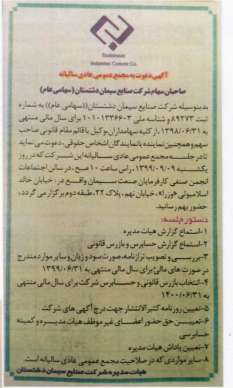 Dashtestan
Industries Cement Co.
آگهی دعوت به مجمع عمومی عادی سالیانه
صاحبان سهام شرکت صنایع سیمان دشتستان (سهامی عام)
بدینوسیله شرکت صنایع سیمان دشتستان ((سهامی عام)) به شماره
ثبت ۸۹۲۷۳ و شناسه ملی ۱۰۱۰۱۳۳۶۶۰۳ برای سال مالی منتهی
به ۱۳۹۸/۰۶/۳۱ از کلیه سهامداران یا وکیل یا قائم مقام قانونی صاحب
سهم و همچنین نماینده یا نمایندگان اشخاص حقوقی، دعوت می نماید
تا در جلسه مجمع عمومی عادی سالیانه این شرکت که در روز
یکشنبه ۱۳۹۹/۰۹/۰۹ راس ساعت ۱۰ صبح، در سالن اجتماعات
انجمن صنفی کارفرمایان صنعت سیمان واقع در: خیابان خالد
اسلامبولی "وزرا"، خیابان نهم، پلاک ۲۲، طبقه دوم برگزار می گردد،
حضور بهم رسانید.
دستور جلسه:
۱-استماع گزارش هیات مدیره
۲-استماع گزارش حسابرس و بازرس قانونی
۳-بررسی و تصویب ترازنامه، صورت سود و زیان و سایر موارد مندرج
در صورت های مالی برای سال مالی منتهی به ۱۳۹۹/۰۶/۳۱
۴-انتخاب بازرس قانونی و حسابرس شرکت برای سال مالی منتهی
به ۱۴۰۰/۰۶/۳۱
۵-تعیین روزنامه کثیرالانتشار جهت درج آگهی های شرکت
۶-تعیین حق حضور اعضای غیر موظف هیات مدیره و کمیته
حسابرسی
۷-تعیین پاداش هیات مدیره
۸-سایر مواردی که در صلاحیت مجمع عمومی عادی سالیانه است.
هیات مدیره شرکت صنایع سیمان دشتستان